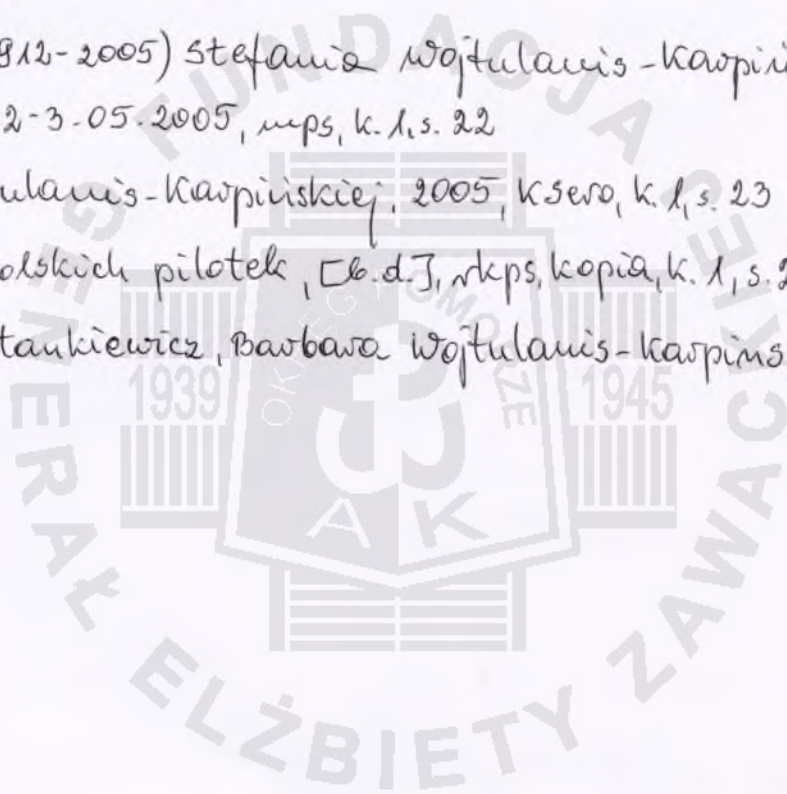 912-2005) Stefania Wojtulanis-Karpiń
2-3.05.2005, mps, k. 1, s. 22
ulanis-Karpińskiej, 2005, ksero, k. 1, s. 23
olskich pilotek, [b.d.], rkps, kopia, k. 1, s. 2
tankiewicz, Barbara Wojtulanis-Karpińs
FUNDACJA GENERAŁ ELŻBIETY ZAWACKIEJ
OKRĘG POMORZE
1939
1945
AK